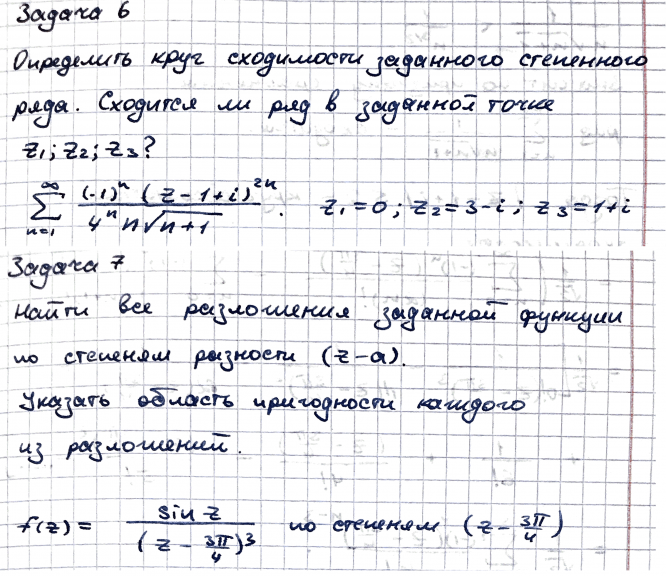 Задача 6
Определить круг сходимости заданного степенного
ряда. Сходится ли ряд в заданной точке
z₁; z₂; z₃?
∞ ∑ n=1 (-1)ⁿ (z-1+i)²ⁿ / 4ⁿ n√(n+1) . z₁=0; z₂=3-i; z₃=1+i
Задача 7
Найти все разложения заданной функции
по степеням разности (z-a).
Указать область пригодности каждого
из разложений.
f(z) = sin z / (z - 3π/4)³ по степеням (z - 3π/4)